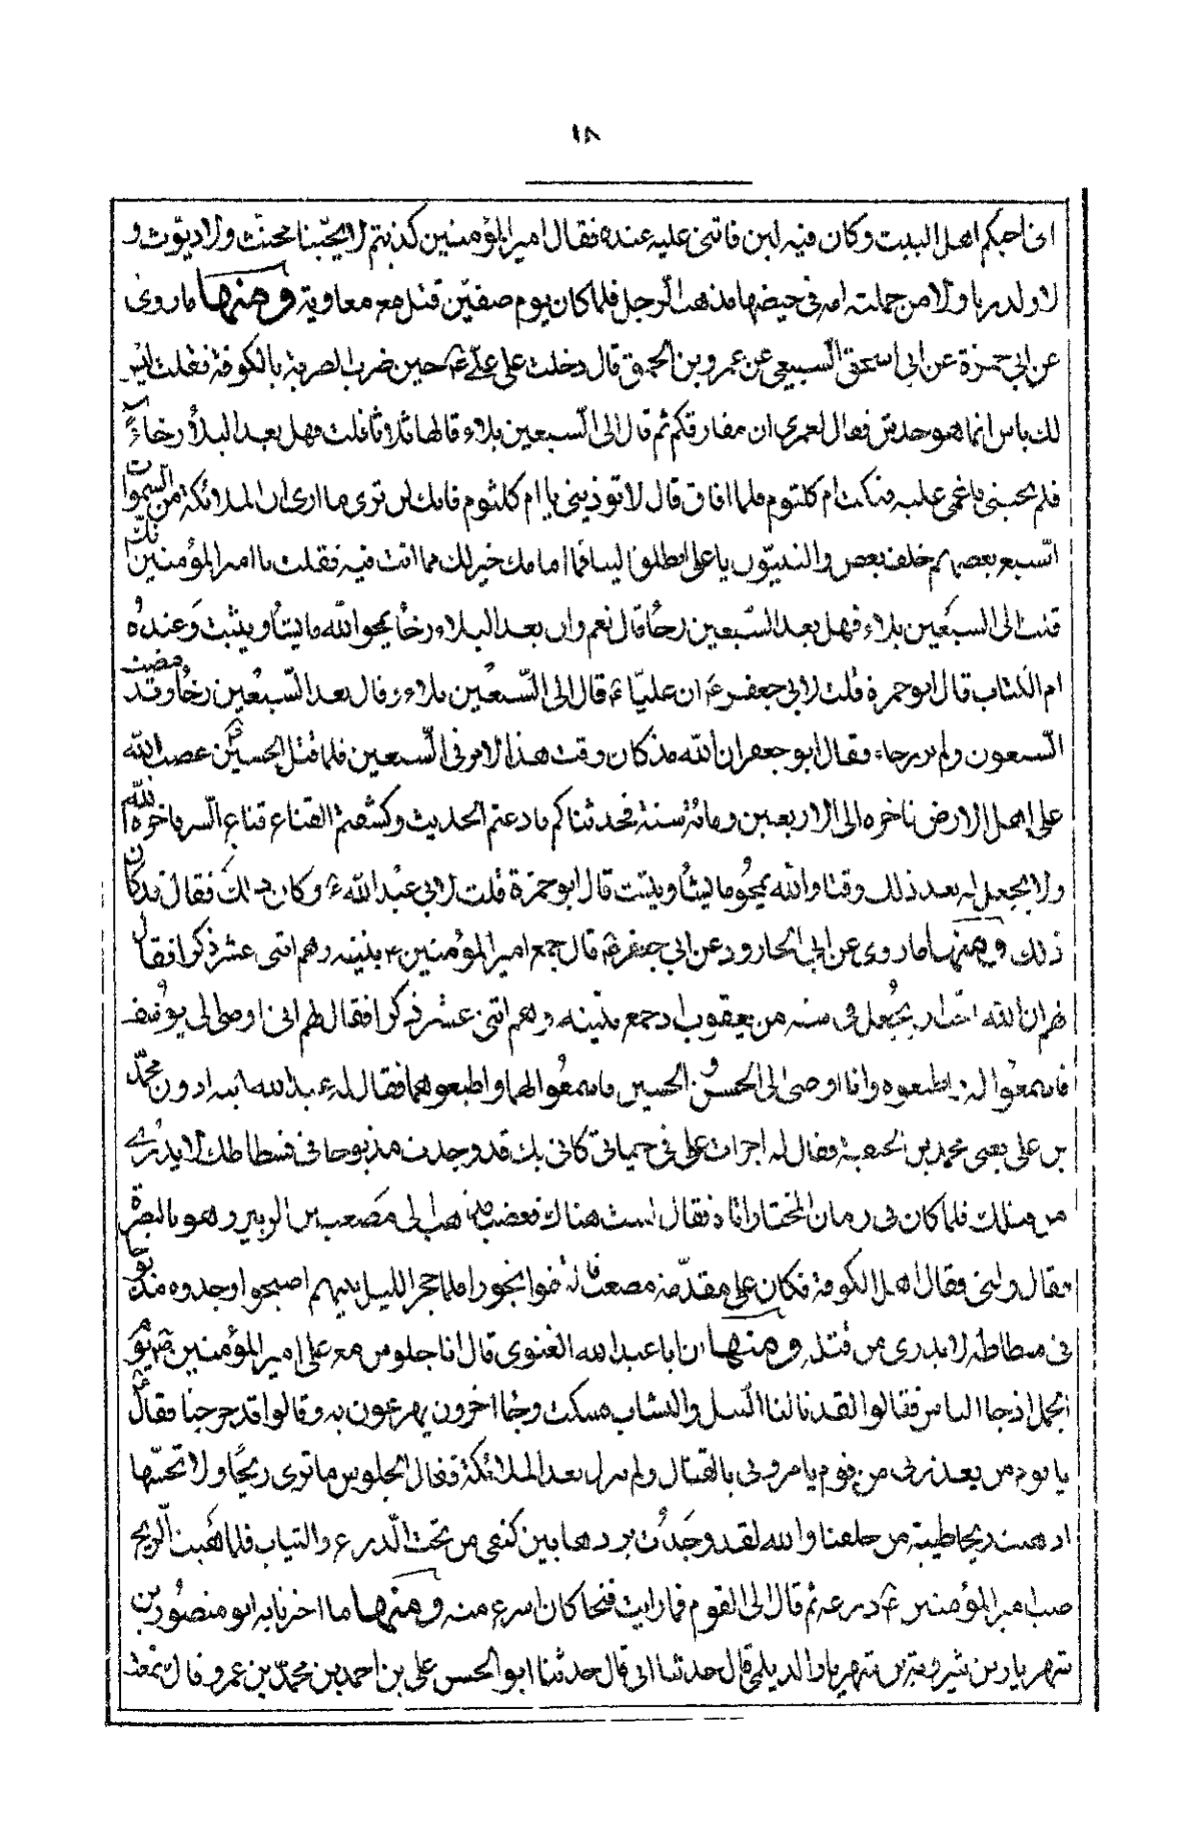 ١٨
انى احبكم اهل البيت وكان فيه لين فاثنى عليه عنده فقال امير المؤمنين كذبتم لا يحبّنا مخنّث ولا ديّوث و
لا ولد زنا ولا من حملته امه فى حيضها فذهب الرجل فلما كان يوم صفّين قتل مع معاوية ومنها ماروى
عن ابى حمزة عن ابى اسحق السبيعى عن عمرو بن الحمق قال دخلت على علىّ ع حين ضرب الضربة بالكوفة فقلت ليس
لك باس انما هو خدش فقال لعمرى انى مفارقكم ثم قال الى السبعين بلاء قالها ثلاثا قلت فهل بعد البلاء رخاء
فلم يجبنى واغمى عليه فبكت ام كلثوم فلما افاق قال لا تؤذينى يا ام كلثوم فانك لن ترى ما ارى ان الملائكة من السموات
السبع بعضهم خلف بعض والنبيّون يا على انطلق الينا فما امامك خير لك مما انت فيه فقلت يا امير المؤمنين انك
قلت الى السبعين بلاء فهل بعد السّبعين رخاء قال نعم وان بعد البلاء رخاء يمحو الله ما يشاء ويثبت وعنده
ام الكتاب قال ابو حمزة قلت لابى جعفر ع ان عليّا ع قال الى السّبعين بلاء وقال بعد السّبعين رخاء وقد مضت
السبعون ولم نر رخاء فقال ابو جعفر ان الله قد كان وقت هذا الامر فى السّبعين فلما قتل الحسين غضب الله
على اهل الارض فاخره الى الاربعين ومائة سنة فحدثناكم فاذعتم الحديث وكشفتم القناع قناع السر فاخره الله
ولم يجعل له بعد ذلك وقتا والله يمحو ما يشاء ويثبت قال ابو حمزة قلت لابى عبد الله ع وكان ذلك فقال قد كان
ذلك ومنها ماروى عن ابى الجارود عن ابى جعفر ع قال جمع امير المؤمنين ع بنيه وهم اثنى عشر ذكرا فقال
لهم ان الله احب ان يجعل فى سنة من يعقوب اذ جمع بنيه وهم اثنى عشر ذكرا فقال لهم انى اوصى الى يوسف
فاسمعوا له واطيعوه وانا اوصى الى الحسن و الحسين فاسمعوا لهما واطيعوهما فقال له عبد الله ابنه ادون محمّد
بن على يعنى محمد بن الحنفية فقال له اجراة على فى حياتى كانى بك قد وجدت مذبوحا فى فسطاطك لا يدرى
من قتلك فلما كان فى زمان المختار اتاه فقال لست هناك فغضب فذهب الى مصعب بن الزبير وهو بالبصرة
فقال ولنى قتال اهل الكوفة فكان على مقدّمة مصعب فالتقوا بحرورا فلما حجز الليل بينهم اصبحوا وجدوه مذبوحا
فى فسطاطه لا يدرى من قتله ومنها ان ابا عبد الله الغنوى قال انا جلوس مع على امير المؤمنين ع يوم
الجمل اذ جاء الناس فقالوا لقد نالنا النبل والنشاب فسكت وجاء اخرون يهرعون به وقالوا قد جرحنا فقال
يا قوم من يعذرنى من قوم يامرونى بالقتال ولم تنزل بعد الملائكة فقال انا لجلوس ما نرى ريحا ولا نحسّها
اذ هبت ريحا طيبة من خلفنا والله لقد وجدت بردها بين كتفى من تحت الدرع والثياب فلما هبت الريح
صب امير المؤمنين ع درعه ثم قام الى القوم فما رايت فتحا كان اسرع منه ومنها ما اخبرنا به ابو منصور بن
شهريار بن شيرويه بن شهريار الديلمى قال حدثنا ابى قال حدثنا ابو الحسن على بن احمد بن محمّد بن عمرو قال